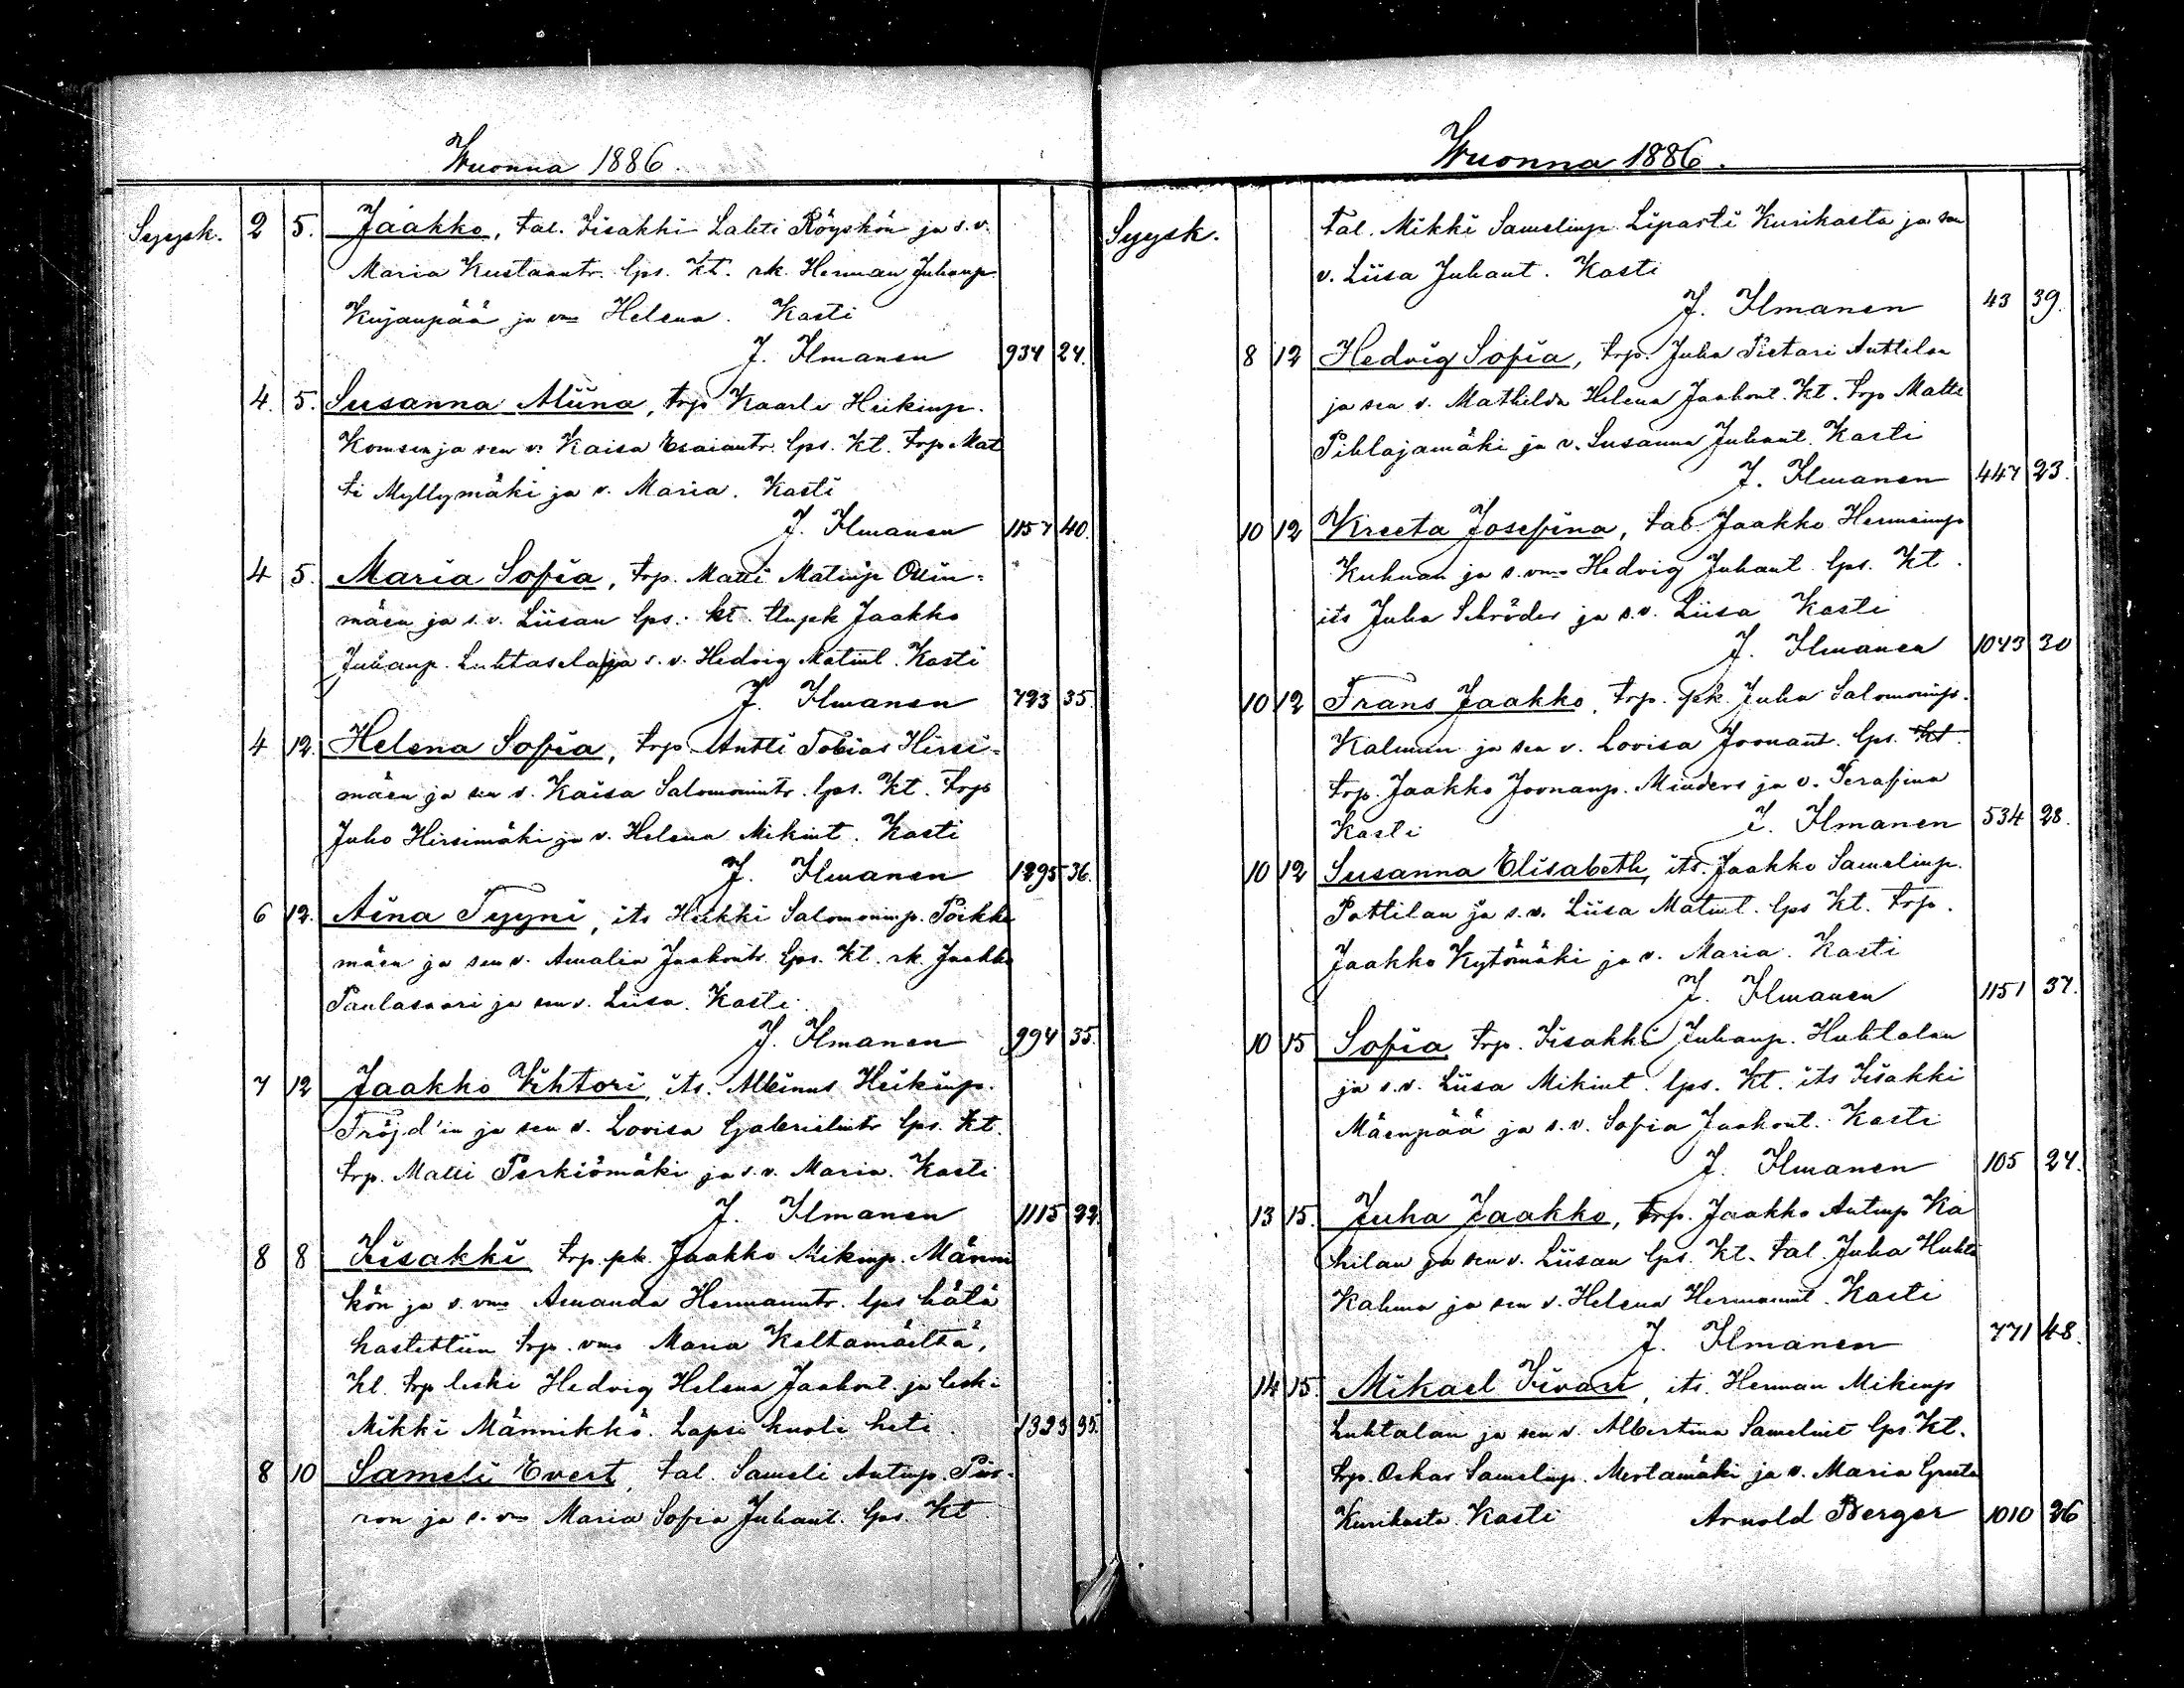 Wuonna 1886.
Syysk. 2 5. Jaakko, tal. Iisakki Lahti Röyskön ja s.v.
Maria Kustaantr. lps. Kt. rk. Herman Juhanp.
Kujanpää ja vmo Helena. Kasti
J. Ilmanen 934 24.
4. 5. Susanna Miina, trp Kaarle Heikinp.
Komsin ja sen v. Kaisa Esaiantr. lps. Kt. trp. Mat
ti Myllymäki ja v. Maria. Kasti
J. Ilmanen 1157 40.
4 5. Maria Sofia, trp. Matti Matinp Ollin-
mäen ja s.v. Liisan lps. kt. Jaakko
Juhanp. Luhtasela ja s.v. Hedvig Matint. Kasti
J. Ilmanen 723 35.
4 12. Helena Sofia, trp. Antti Tobias Hirsi-
mäen ja sen v. Kaisa Salomonintr. lps. Kt. trp
Juho Hirsimäki ja v. Helena Mikint. Kasti
J. Ilmanen 1295 36.
6 12. Aina Tyyni, its Heikki Salomoninp. Poikki
mäen ja sen v. Amalia Jaakontr. lps. Kt. rk. Jaakko
Paulasaari ja sen v. Liisa. Kasti.
J. Ilmanen 994 35.
7 12 Jaakko Vihtori, its. Albinus Heikinp.
Fröjd'in ja sen v. Lovisa Gabrielintr lps. Kt.
trp. Matti Perkiömäki ja s.v. Maria. Kasti
J. Ilmanen 1115 22.
8 8 Iisakki trp. pk. Jaakko Mikinp. Männi
kön ja s. vmo Amanda Hermanntr. lps hätä
kastettiin trp. vmo Maria Keltamäeltä,
Kt. trp leski Hedvig Helena Jaakont. ja leski
Mikki Männikkö. Lapsi kuoli heti. 1323 35.
8 10 Sameli Evert, tal. Sameli Antinp. Piir-
ron ja s. vmo Maria Sofia Juhant. lps. Kt
Wuonna 1886.
Syysk. tal. Mikki Samelinp. Liparti Kurikasta ja sen
v. Liisa Juhant. Kasti
J. Ilmanen 43 39.
8 12 Hedvig Sofia, trp. Juha Pietari Anttilan
ja sen v. Mathilda Helena Jaakont. Kt. trp Matti
Pihlajamäki ja v. Susanna Juhant. Kasti
J. Ilmanen 447 23.
10 12 Kreeta Josefina, tal Jaakko Hermaninp
Kuhnan ja s. vmo Hedvig Juhant. lps. Kt.
its Juha Schröder ja s.v. Liisa Kasti
J. Ilmanen 1043 30
10 12 Frans Jaakko, trp. pk. Juha Salomoninp.
Kalmin ja sen v. Lovisa Joonant. lps. Kt.
trp. Jaakko Joonanp. Minders ja v. Serafina
Kasti J. Ilmanen 534 28.
10 12 Susanna Elisabeth, its. Jaakko Samelinp.
Pottilan ja s.v. Liisa Matint. lps Kt. trp.
Jaakko Kytömäki ja v. Maria. Kasti
J. Ilmanen 1151 37.
10 15 Sofia trp. Iisakki Juhanp. Huhtalan
ja s.v. Liisa Mikint. lps. Kt. its Iisakki
Mäenpää ja s.v. Sofia Jaakont. Kasti
J. Ilmanen 105 24.
13 15. Juha Jaakko, trp. Jaakko Antinp Ka
hilan ja sen v. Liisan lps. Kt. tal. Juha Huhta
Kahma ja sen v. Helena Hermannt. Kasti
J. Ilmanen 771 48.
14 15. Mikael Iivari, its. Herman Mikinp
Luhtalan ja sen v. Albertina Samelint lps. Kt.
trp. Oskar Samelinp. Mertamäki ja v. Maria Greeta
Kurikasta. Kasti Arnold Berger 1010 26